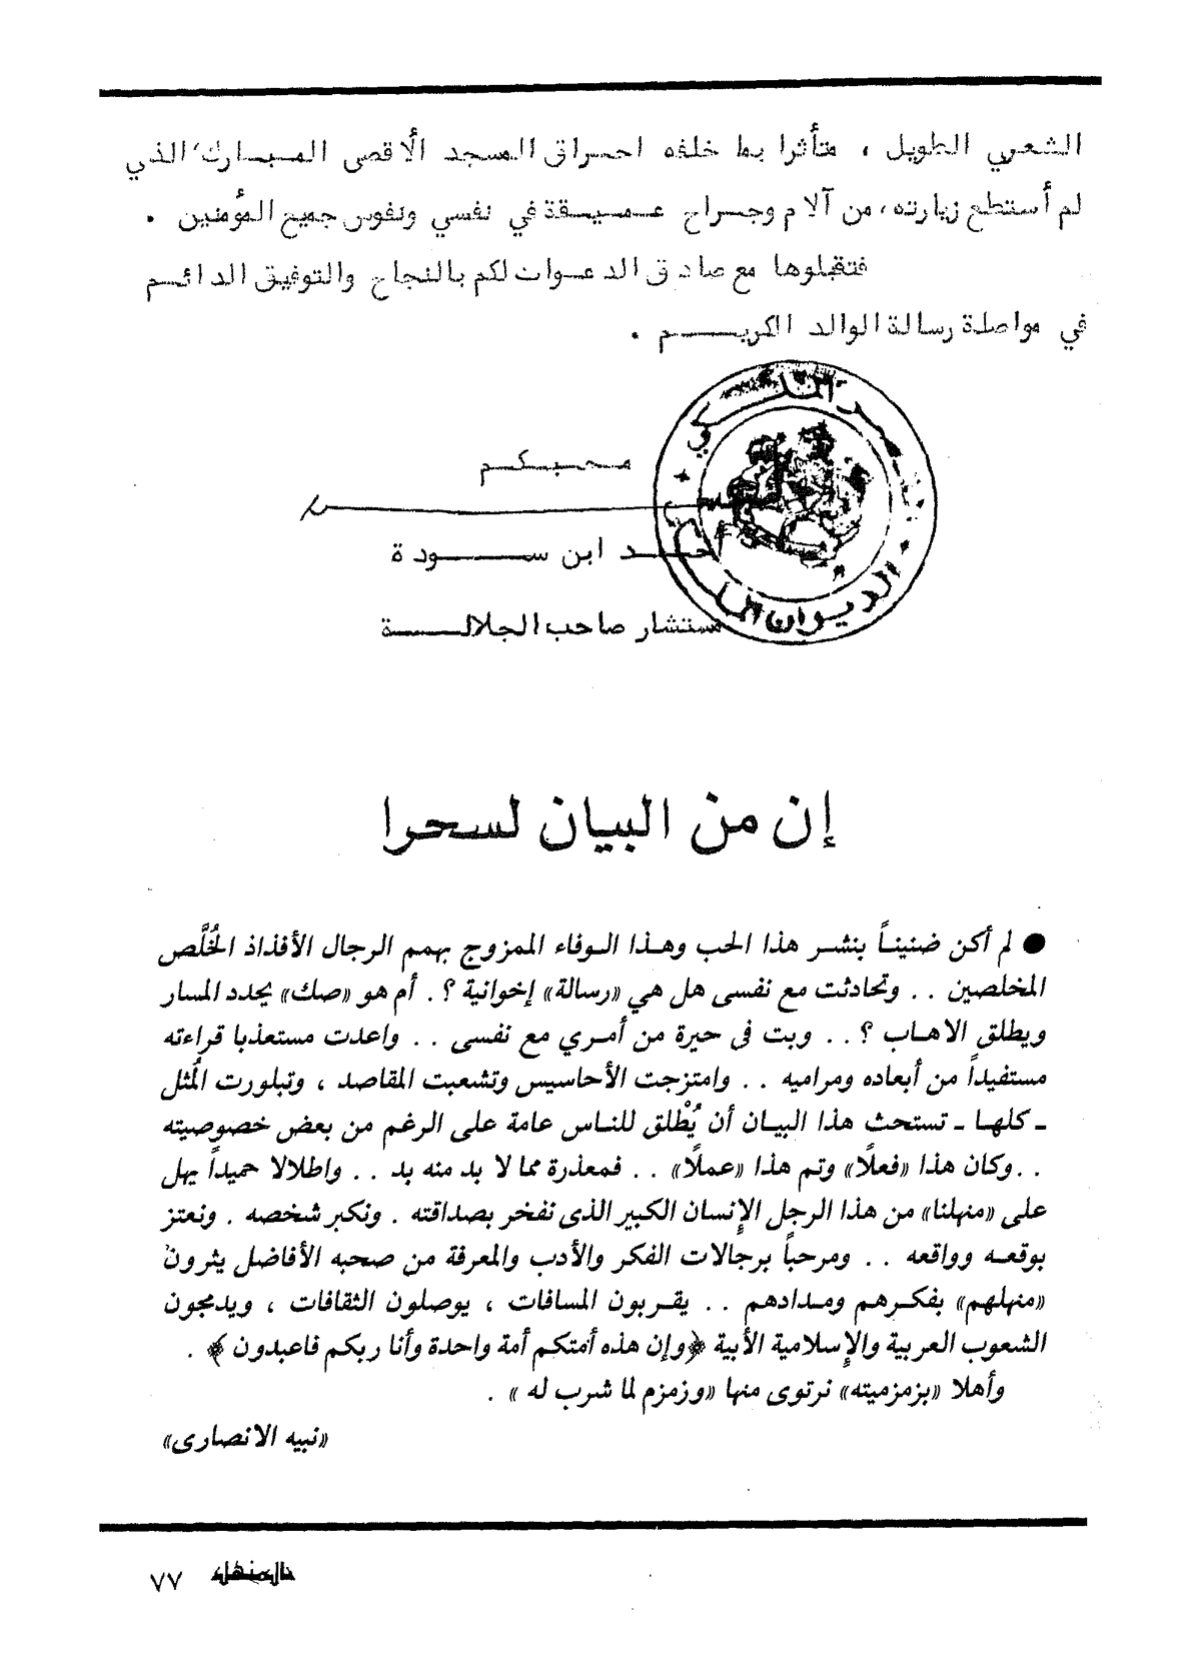 الشعري الطويل ، متأثرا بما خلفه احراق المسجد الأقصى المبارك الذي
لم أستطع زيارته، من آلام وجراح عميقة في نفسي ونفوس جميع المؤمنين .
فتقبلوها مع صادق الدعوات لكم بالنجاح والتوفيق الدائم
في مواصلة رسالة الوالد الكريم .
محبكم
أحمد ابن سودة
مستشار صاحب الجلالة
الديوان الملكي
إن من البيان لسحرا
● لم أكن ضنيناً بنشر هذا الحب وهذا الوفاء الممزوج بهمم الرجال الأفذاذ الخُلَّص
المخلصين . . وتحادثت مع نفسى هل هي «رسالة» إخوانية ؟. أم هو «صك» يحدد المسار
ويطلق الاهاب ؟ . . وبت فى حيرة من أمري مع نفسى . . واعدت مستعذبا قراءته
مستفيداً من أبعاده ومراميه . . وامتزجت الأحاسيس وتشعبت المقاصد ، وتبلورت المُثل
ـ كلها ـ تستحث هذا البيان أن يُطْلق للناس عامة على الرغم من بعض خصوصيته
. . وكان هذا «فعلًا» وتم هذا «عملًا» . . فمعذرة مما لا بد منه بد . . واطلالا حميداً يهل
على «منهلنا» من هذا الرجل الإنسان الكبير الذى نفخر بصداقته . ونكبر شخصه . ونعتز
بوقعه وواقعه . . ومرحباً برجالات الفكر والأدب والمعرفة من صحبه الأفاضل يثرون
«منهلهم» بفكرهم ومدادهم . . يقربون المسافات ، يوصلون الثقافات ، ويدمجون
الشعوب العربية والإسلامية الأبية ﴿وإن هذه أمتكم أمة واحدة وأنا ربكم فاعبدون﴾ .
وأهلا «بزمزميته» نرتوى منها «وزمزم لما شرب له» .
«نبيه الانصارى»
المنهل ٧٧